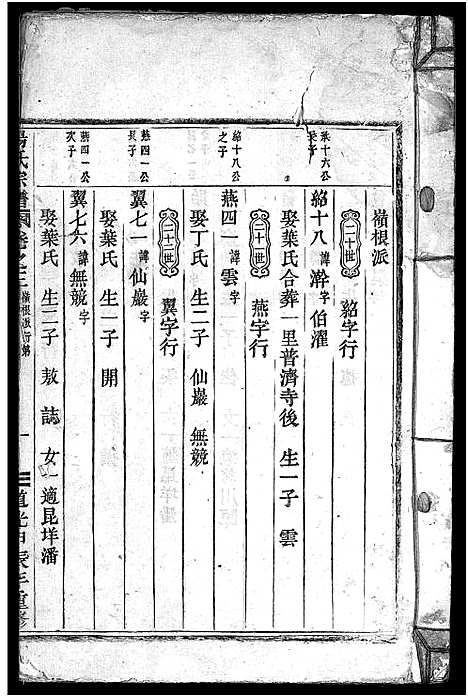 嶺根派
二十世 紹字行
承十六公
長子
紹十八 諱澣 字伯濯
娶葉氏合葬一里普濟寺後 生一子 雲
二十一世 燕字行
紹十八公
之子
燕四一 諱雲 字
娶丁氏 生二子 仙巖 無競
二十二世 翼字行
燕四一公
長子
翼七一 諱仙巖 字
娶葉氏 生一子 開
燕四一公
次子
翼七六 諱無競 字
娶葉氏 生二子 敖 誌 女一適昆垟潘
楊氏宗譜 卷之 嶺根派行第 一 道光 年重修